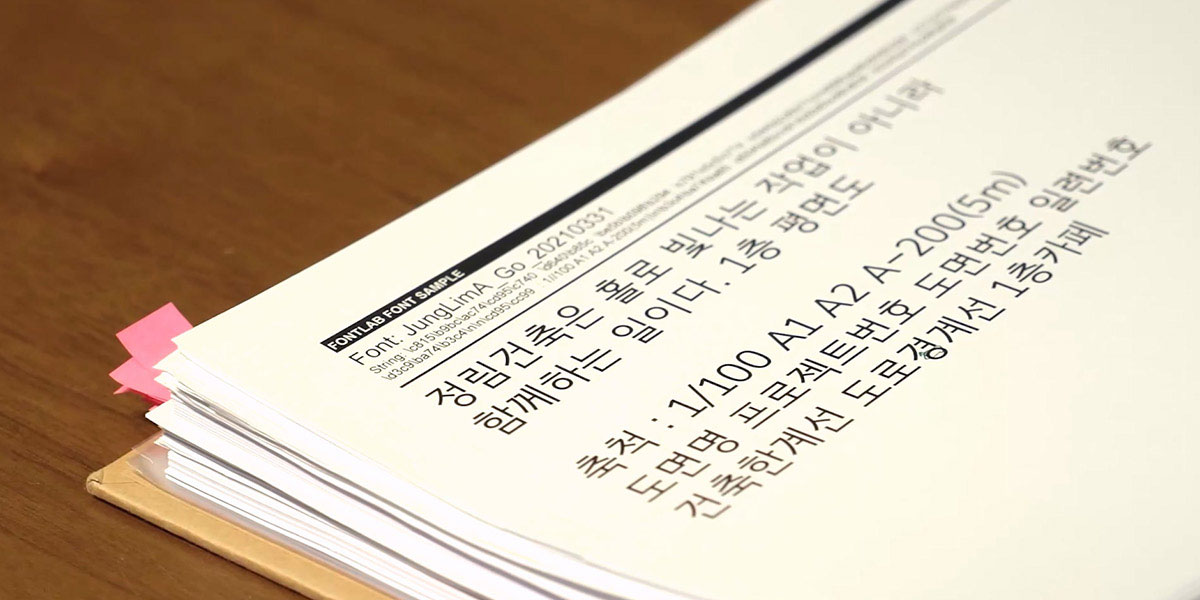 FONTLAB FONT SAMPLE
Font: JungLimA_Go_20210331
String: \c815\b9bc\ac74\cd95\c740 \d640\b85c
\d3c9\ba74\b3c4\n\n\cd95\cc99 : 1//100 A1 A2 A-200(5m)
정림건축은 홀로 빛나는 작업이 아니라
함께하는 일이다. 1층 평면도
축척 : 1/100 A1 A2 A-200(5m)
도면명 프로젝트번호 도면번호 일련번호
건축한계선 도로경계선 1층카페